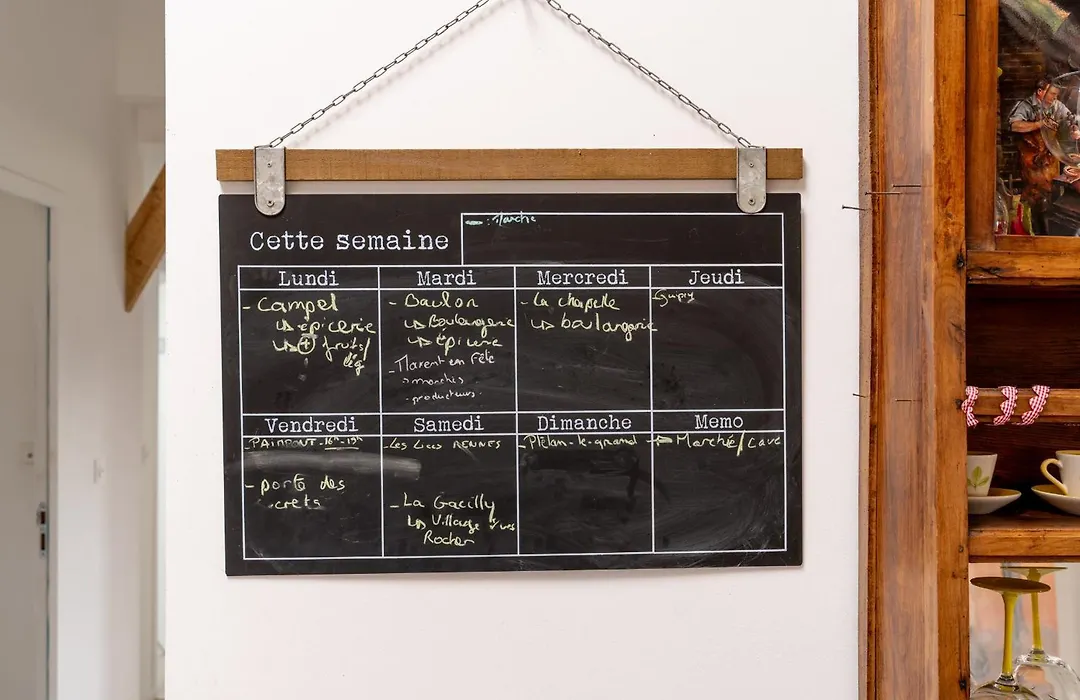 : Marché
Cette semaine
Lundi
Mardi
Mercredi
Jeudi
- Campel
↳ épicerie
↳ + fruits/
lég
- Baulon
↳ Boulangerie
↳ épicerie
- Maxent en Fête
marchés
producteurs
- La chapelle
↳ boulangerie
- Guipry
Vendredi
Samedi
Dimanche
Memo
- PAIMPONT - 16h-19h
- porte des
secrets
Les Lices RENNES
- La Gacilly
↳ Village Yves
Rocher
- Plélan-le-grand
Marché/Cave